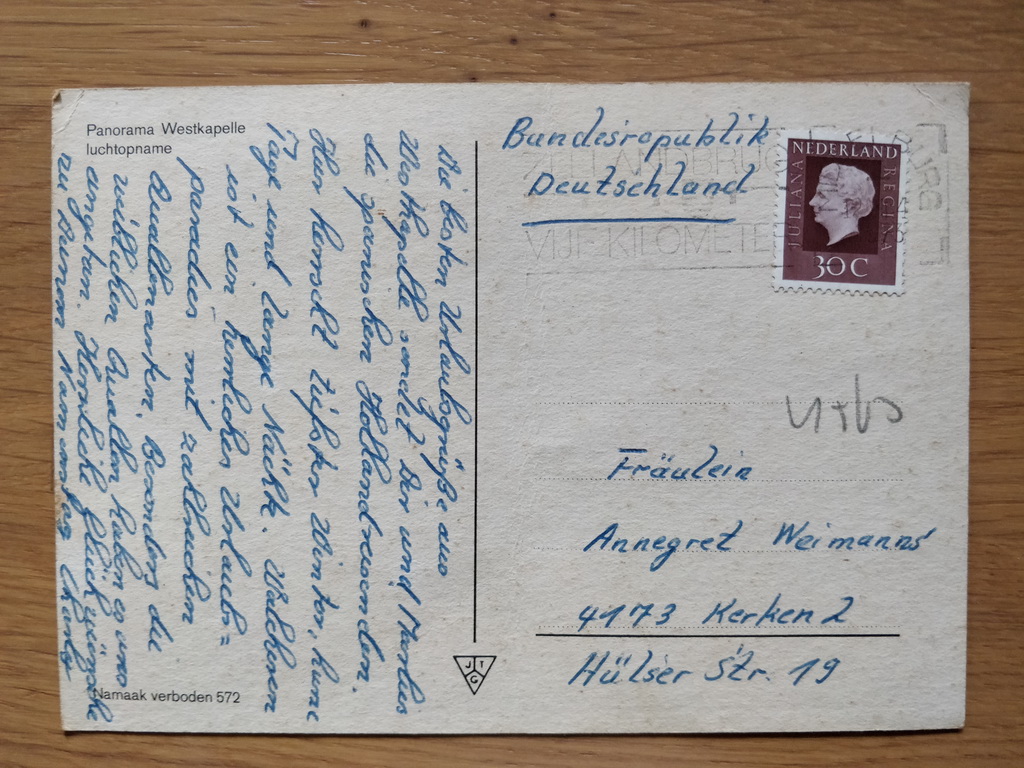 Panorama Westkapelle
luchtopname
Die besten Urlaubsgrüße aus
Westkapelle sendet Dir und
die spanischen Hollandreisenden.
Hier herrscht tiefster Winter, kurze
Tage und lange Nächte. Walcheren
ist ein herrliches Urlaubs=
paradies mit zahlreichen
Quallenarten. Besonders die
weiblichen Quallen haben es uns
angetan. Herzlich Glückwünsche
zu Deinem Namenstag
Namaak verboden 572
JTG
Bundesrepublik
Deutschland
VIJF KILOMETE
NEDERLAND
JULIANA REGINA
30 C
Fräulein
Annegret Weimanns
4173 Kerken 2
Hülser Str. 19